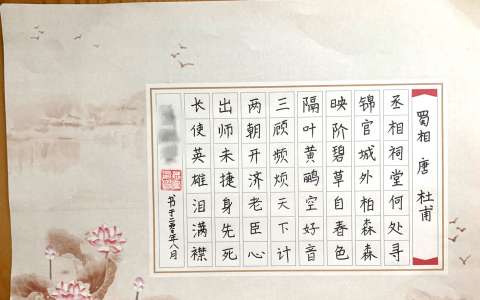 蜀相 唐 杜甫
丞相祠堂何处寻
锦官城外柏森森
映阶碧草自春色
隔叶黄鹂空好音
三顾频烦天下计
两朝开济老臣心
出师未捷身先死
长使英雄泪满襟